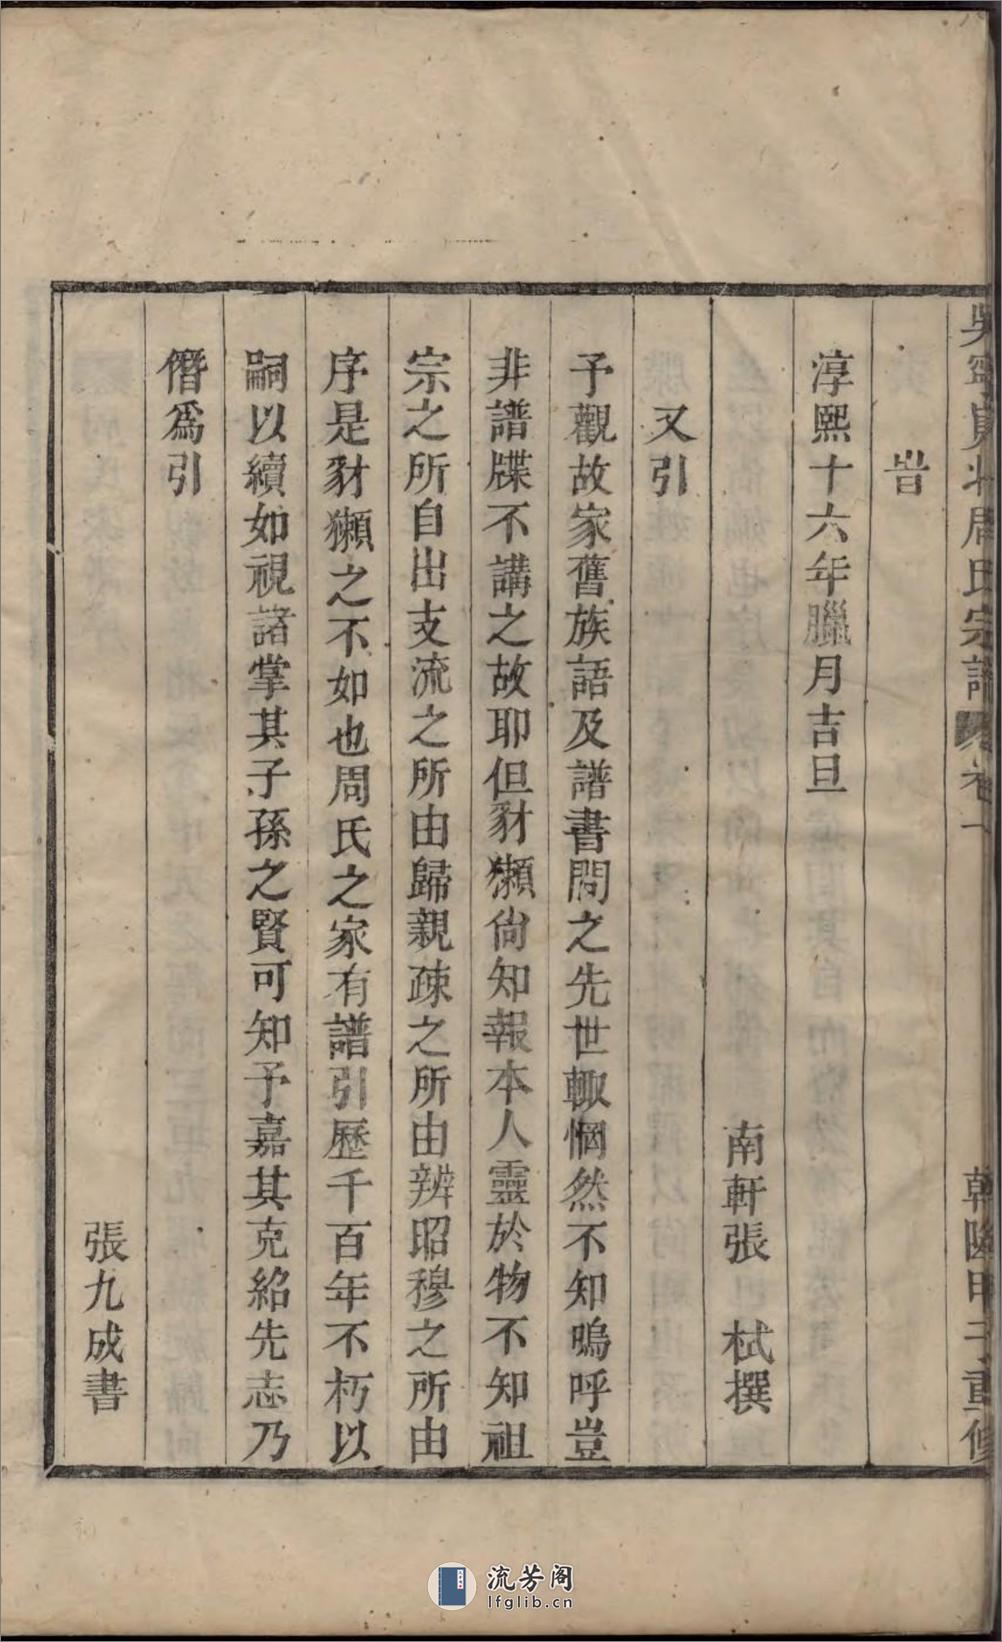 吳寧
周氏宗譜
卷一
乾隆甲子重修
旹
淳熙十六年臘月吉旦
南軒張 栻撰
又引
予觀故家舊族語及譜書問之先世輙惘然不知嗚呼豈
非譜牒不講之故耶但豺獺尙知報本人靈於物不知祖
宗之所自出支流之所由歸親疎之所由辨昭穆之所由
序是豺獺之不如也周氏之家有譜引歷千百年不朽以
嗣以續如視諸掌其子孫之賢可知予嘉其克紹先志乃
僭爲引
張九成書
流芳阁
lfglib.cn